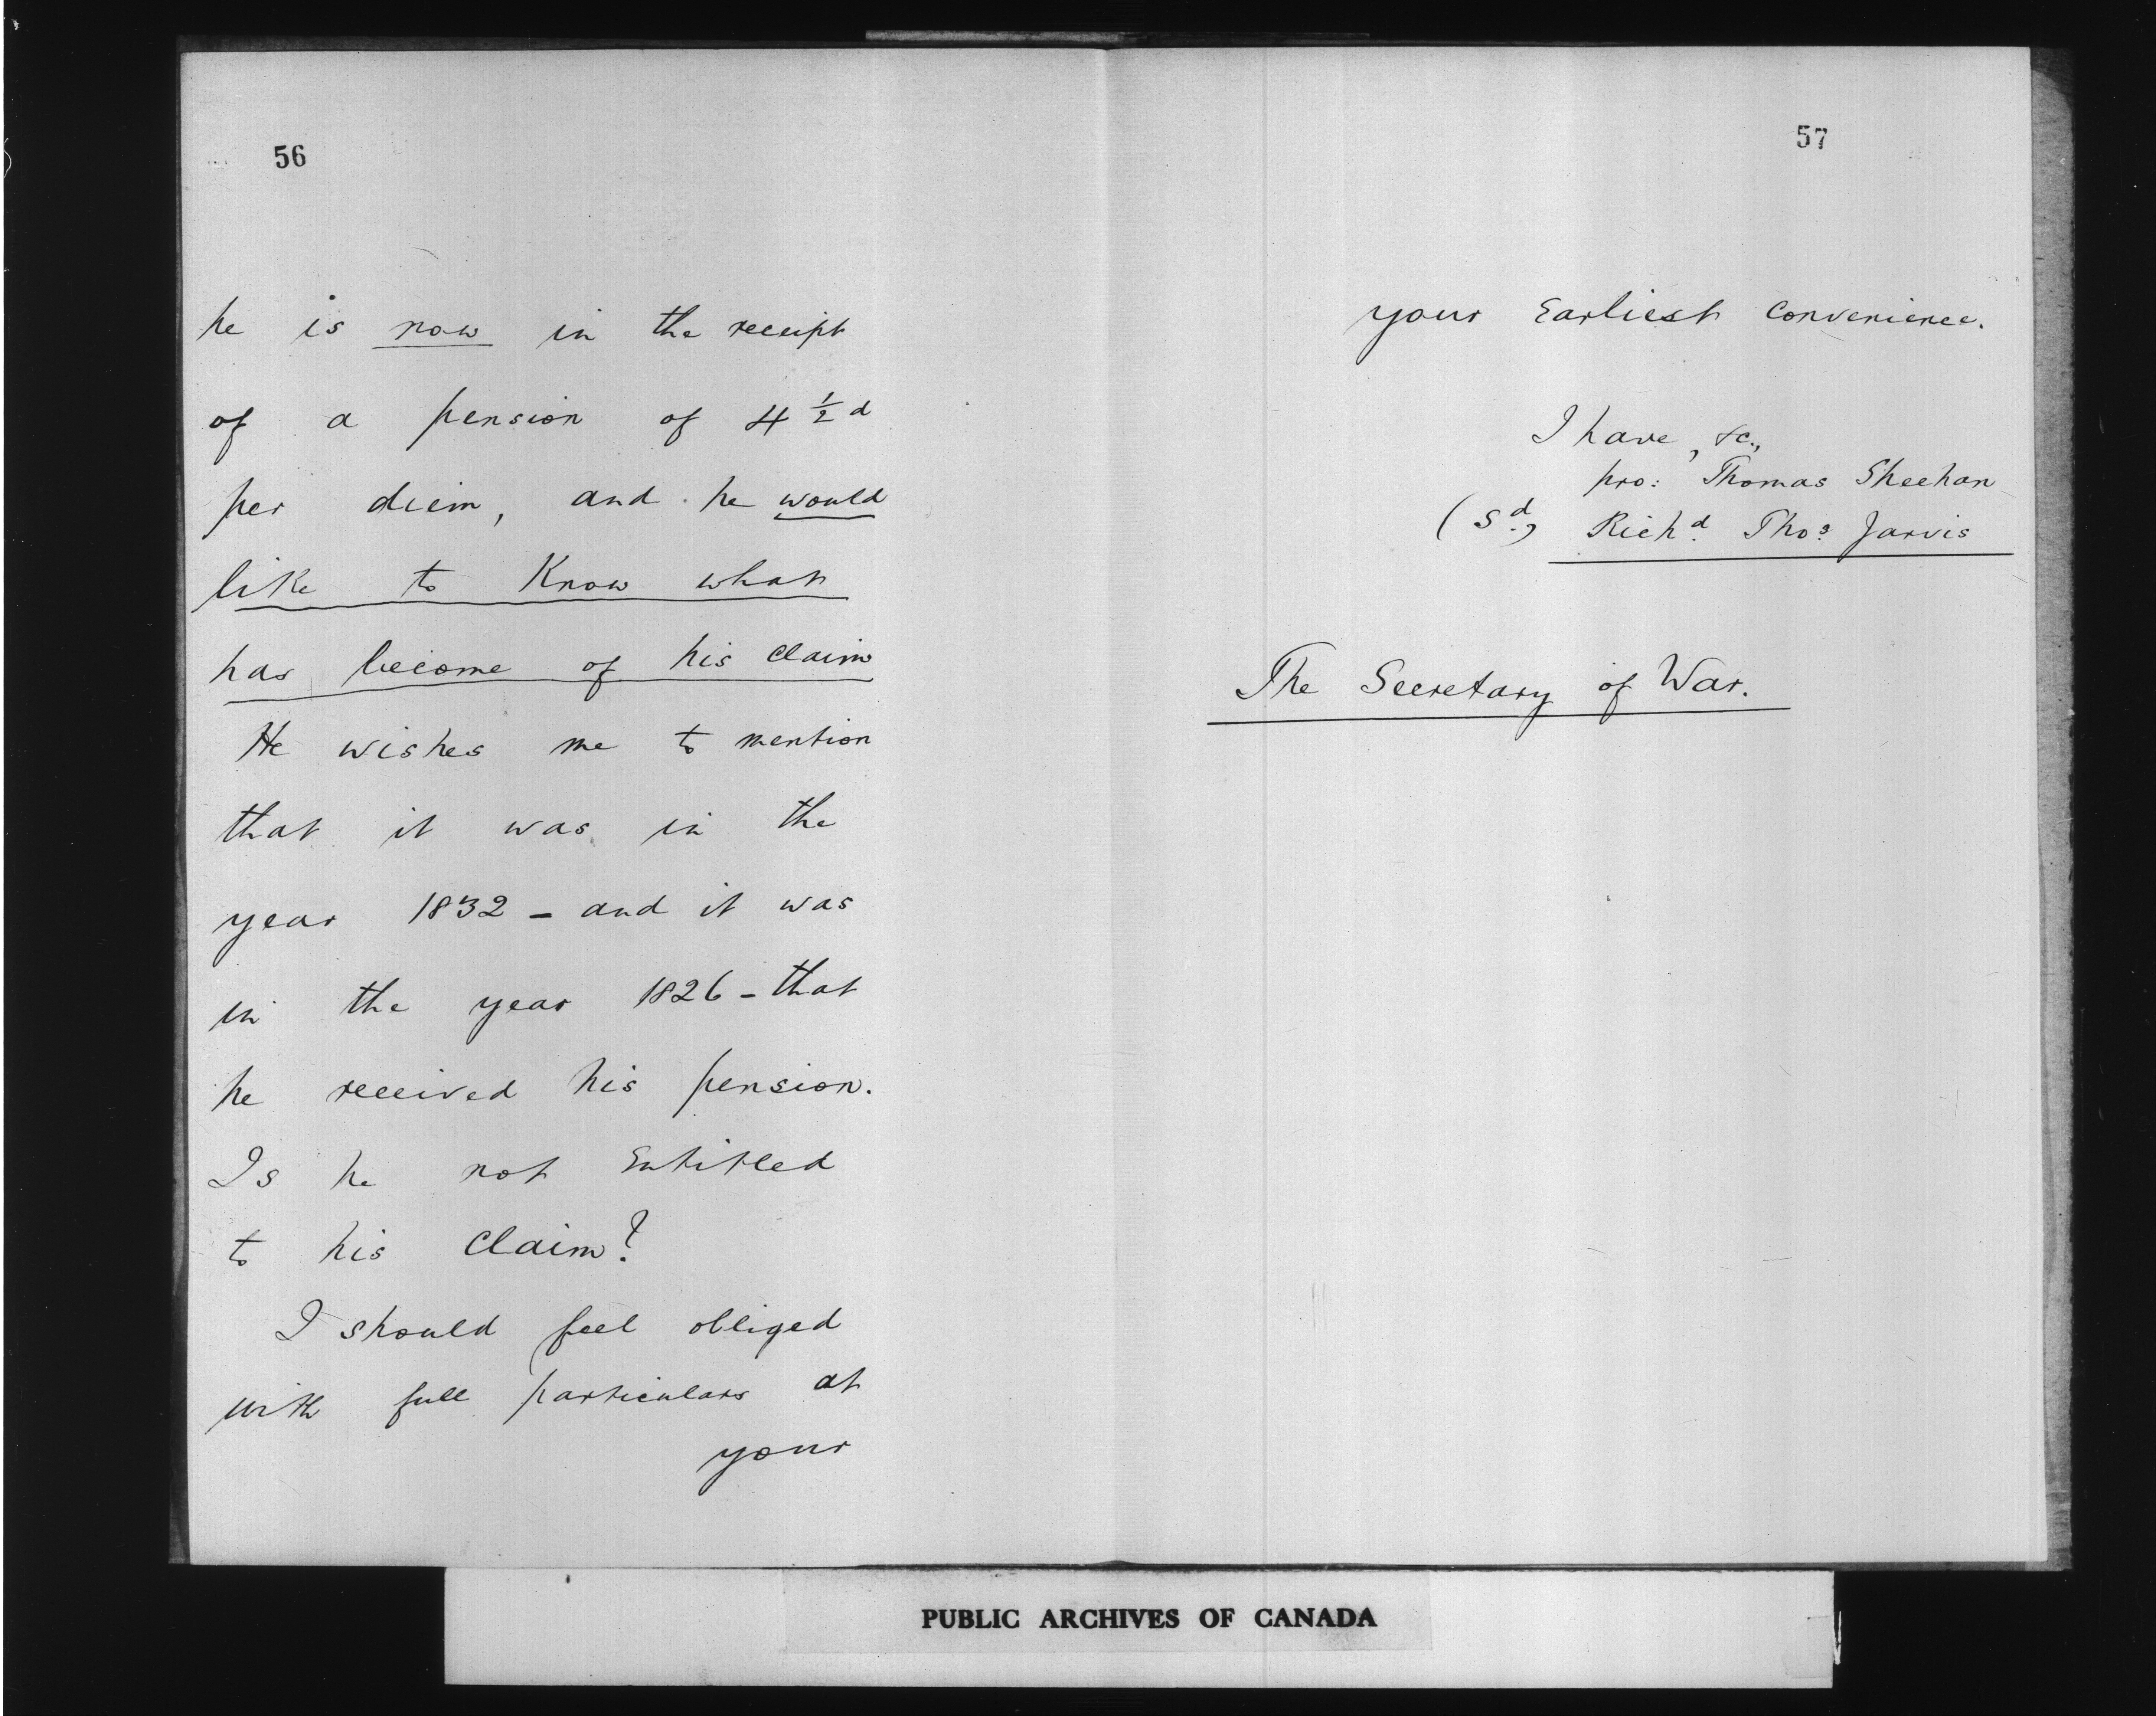 56
he is now in the receipt
of a pension of 4 ½ d
per diem, and he would
like to Know what
has become of his claim
He wishes me to mention
that it was in the
year 1832 - and it was
in the year 1826 - that
he received his pension.
Is he not Entitled
to his Claim?
I should feel obliged
with full particulars at
your
57
your Earliest Convenience.
I have, &c.,
pro: Thomas Sheehan
(Sd.) Richd. Thos. Jarvis
The Secretary of War.
PUBLIC ARCHIVES OF CANADA